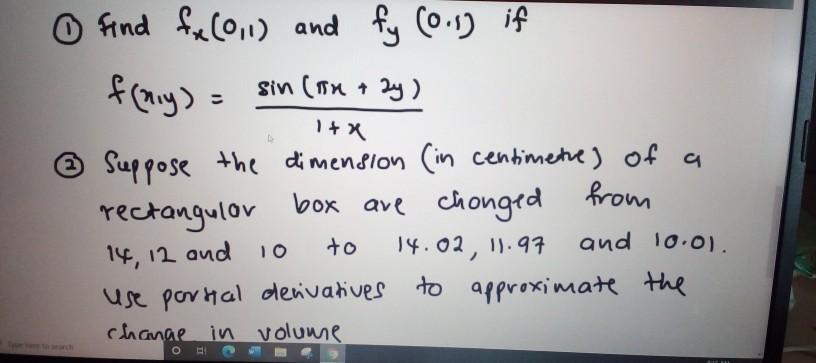 ① find fx(0,1) and fy(0.1) if
f(x,y) = sin(πx + 2y)
1+x
② Suppose the dimension (in centimetre) of a
rectangular box are changed from
14, 12 and 10 to 14.02, 11.97 and 10.01.
use partial derivatives to approximate the
change in volume
Type here to search